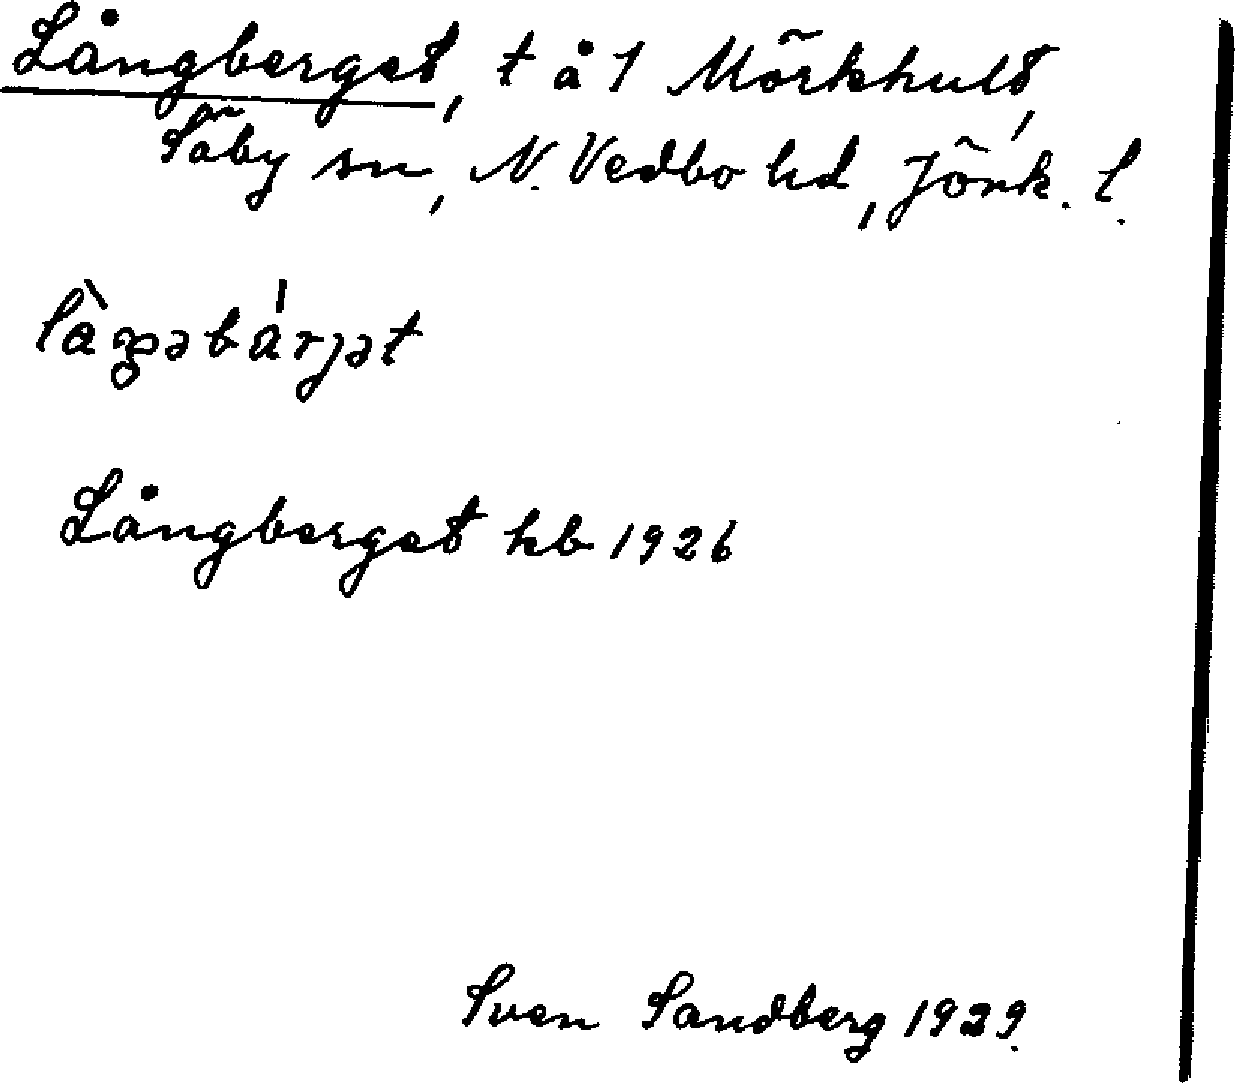 Långberget, t å 1 Mörkhult,
Säby sn, N. Vedbo hd, Jönk. l.
Långberget kb 1926
Sven Sandberg 1929.